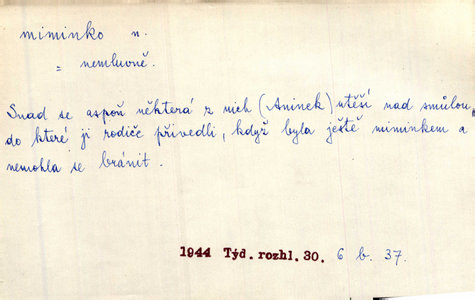 miminko n.
= nemluvně.
Snad se aspoň některá z nich (Aninek) utěší nad smůlou,
do které ji rodiče přivedli, když byla ještě miminkem a
nemohla se bránit.
1944 Týd. rozhl. 30. 6 b. 37.